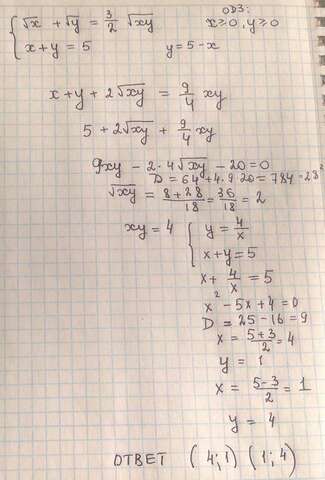 ОДЗ:
{ √x + √y = 3/2 √xy    x ≥ 0, y ≥ 0
x + y = 5    y = 5 - x
x + y + 2√xy = 9/4 xy
5 + 2√xy + 9/4 xy
9xy - 2·4√xy - 20 = 0
D = 64 + 4·9·20 = 784 = 28²
√xy = (8 + 28)/18 = 36/18 = 2
xy = 4 { y = 4/x
x + y = 5
x + 4/x = 5
x² - 5x + 4 = 0
D = 25 - 16 = 9
x = (5 + 3)/2 = 4
y = 1
x = (5 - 3)/2 = 1
y = 4
ОТВЕТ (4; 1) (1; 4)